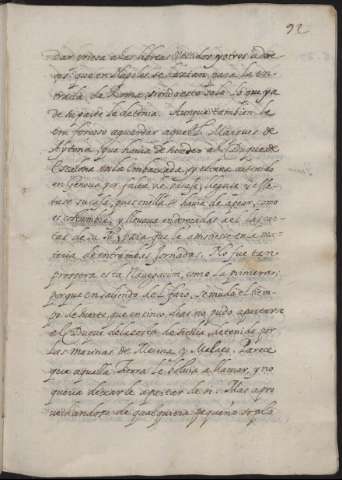 92
dar priesa a las libreas vestidos y otros adere
ços que en Napoles se hazian para la en
trada de Roma siendo esto solo lo que ya
de su parte le detenia. Aunque tambien le
era forçoso aguardar a que el Marques de
Aytona que havia de suceder al Duque de
Escalona en la Embaxada, y estava detenido
en Genova ya falto de salud, llegase
su casa, pues en ella se havia de apear, como
es costumbre, y llevase
de su M. para que le asistiese en la
de entrambas Jornadas. No fue tan
prospera esta Navegaçion, como la primera;
porque en saliendo del faro, se mudo el tiem
po de suerte, que en cinco dias no pudo apartarse
el Duque de la costa de Sicilia, detenido por
las marinas de Mesina, y Melaço. Pareçe
que aquella tierra le bolvia a llamar, y no
queria dexarle apartar de si. Mas apro
vechandose de qualquiera pequeño soplo